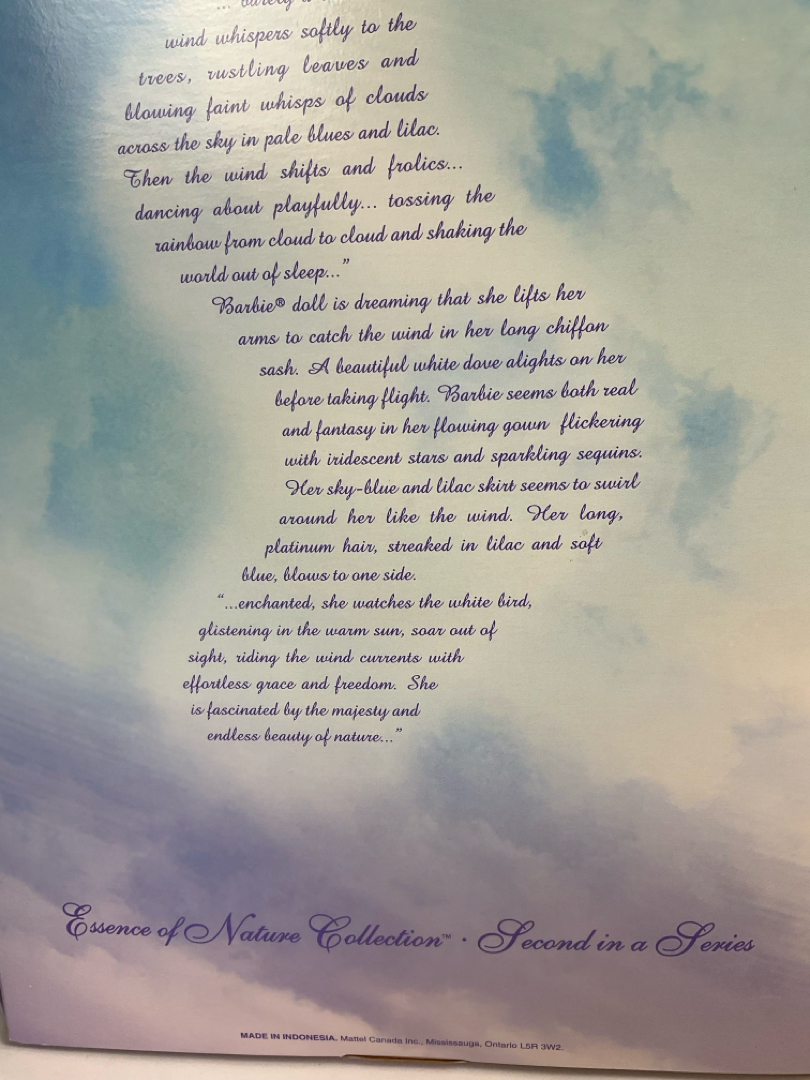 wind whispers softly to the
trees, rustling leaves and
blowing faint whisps of clouds
across the sky in pale blues and lilac.
Then the wind shifts and frolics...
dancing about playfully... tossing the
rainbow from cloud to cloud and shaking the
world out of sleep..."
Barbie® doll is dreaming that she lifts her
arms to catch the wind in her long chiffon
sash. A beautiful white dove alights on her
before taking flight. Barbie seems both real
and fantasy in her flowing gown flickering
with iridescent stars and sparkling sequins.
Her sky-blue and lilac skirt seems to swirl
around her like the wind. Her long,
platinum hair, streaked in lilac and soft
blue, blows to one side.
"...enchanted, she watches the white bird,
glistening in the warm sun, soar out of
sight, riding the wind currents with
effortless grace and freedom. She
is fascinated by the majesty and
endless beauty of nature..."
Essence of Nature Collection™ · Second in a Series
MADE IN INDONESIA. Mattel Canada Inc., Mississauga, Ontario L5R 3W2.